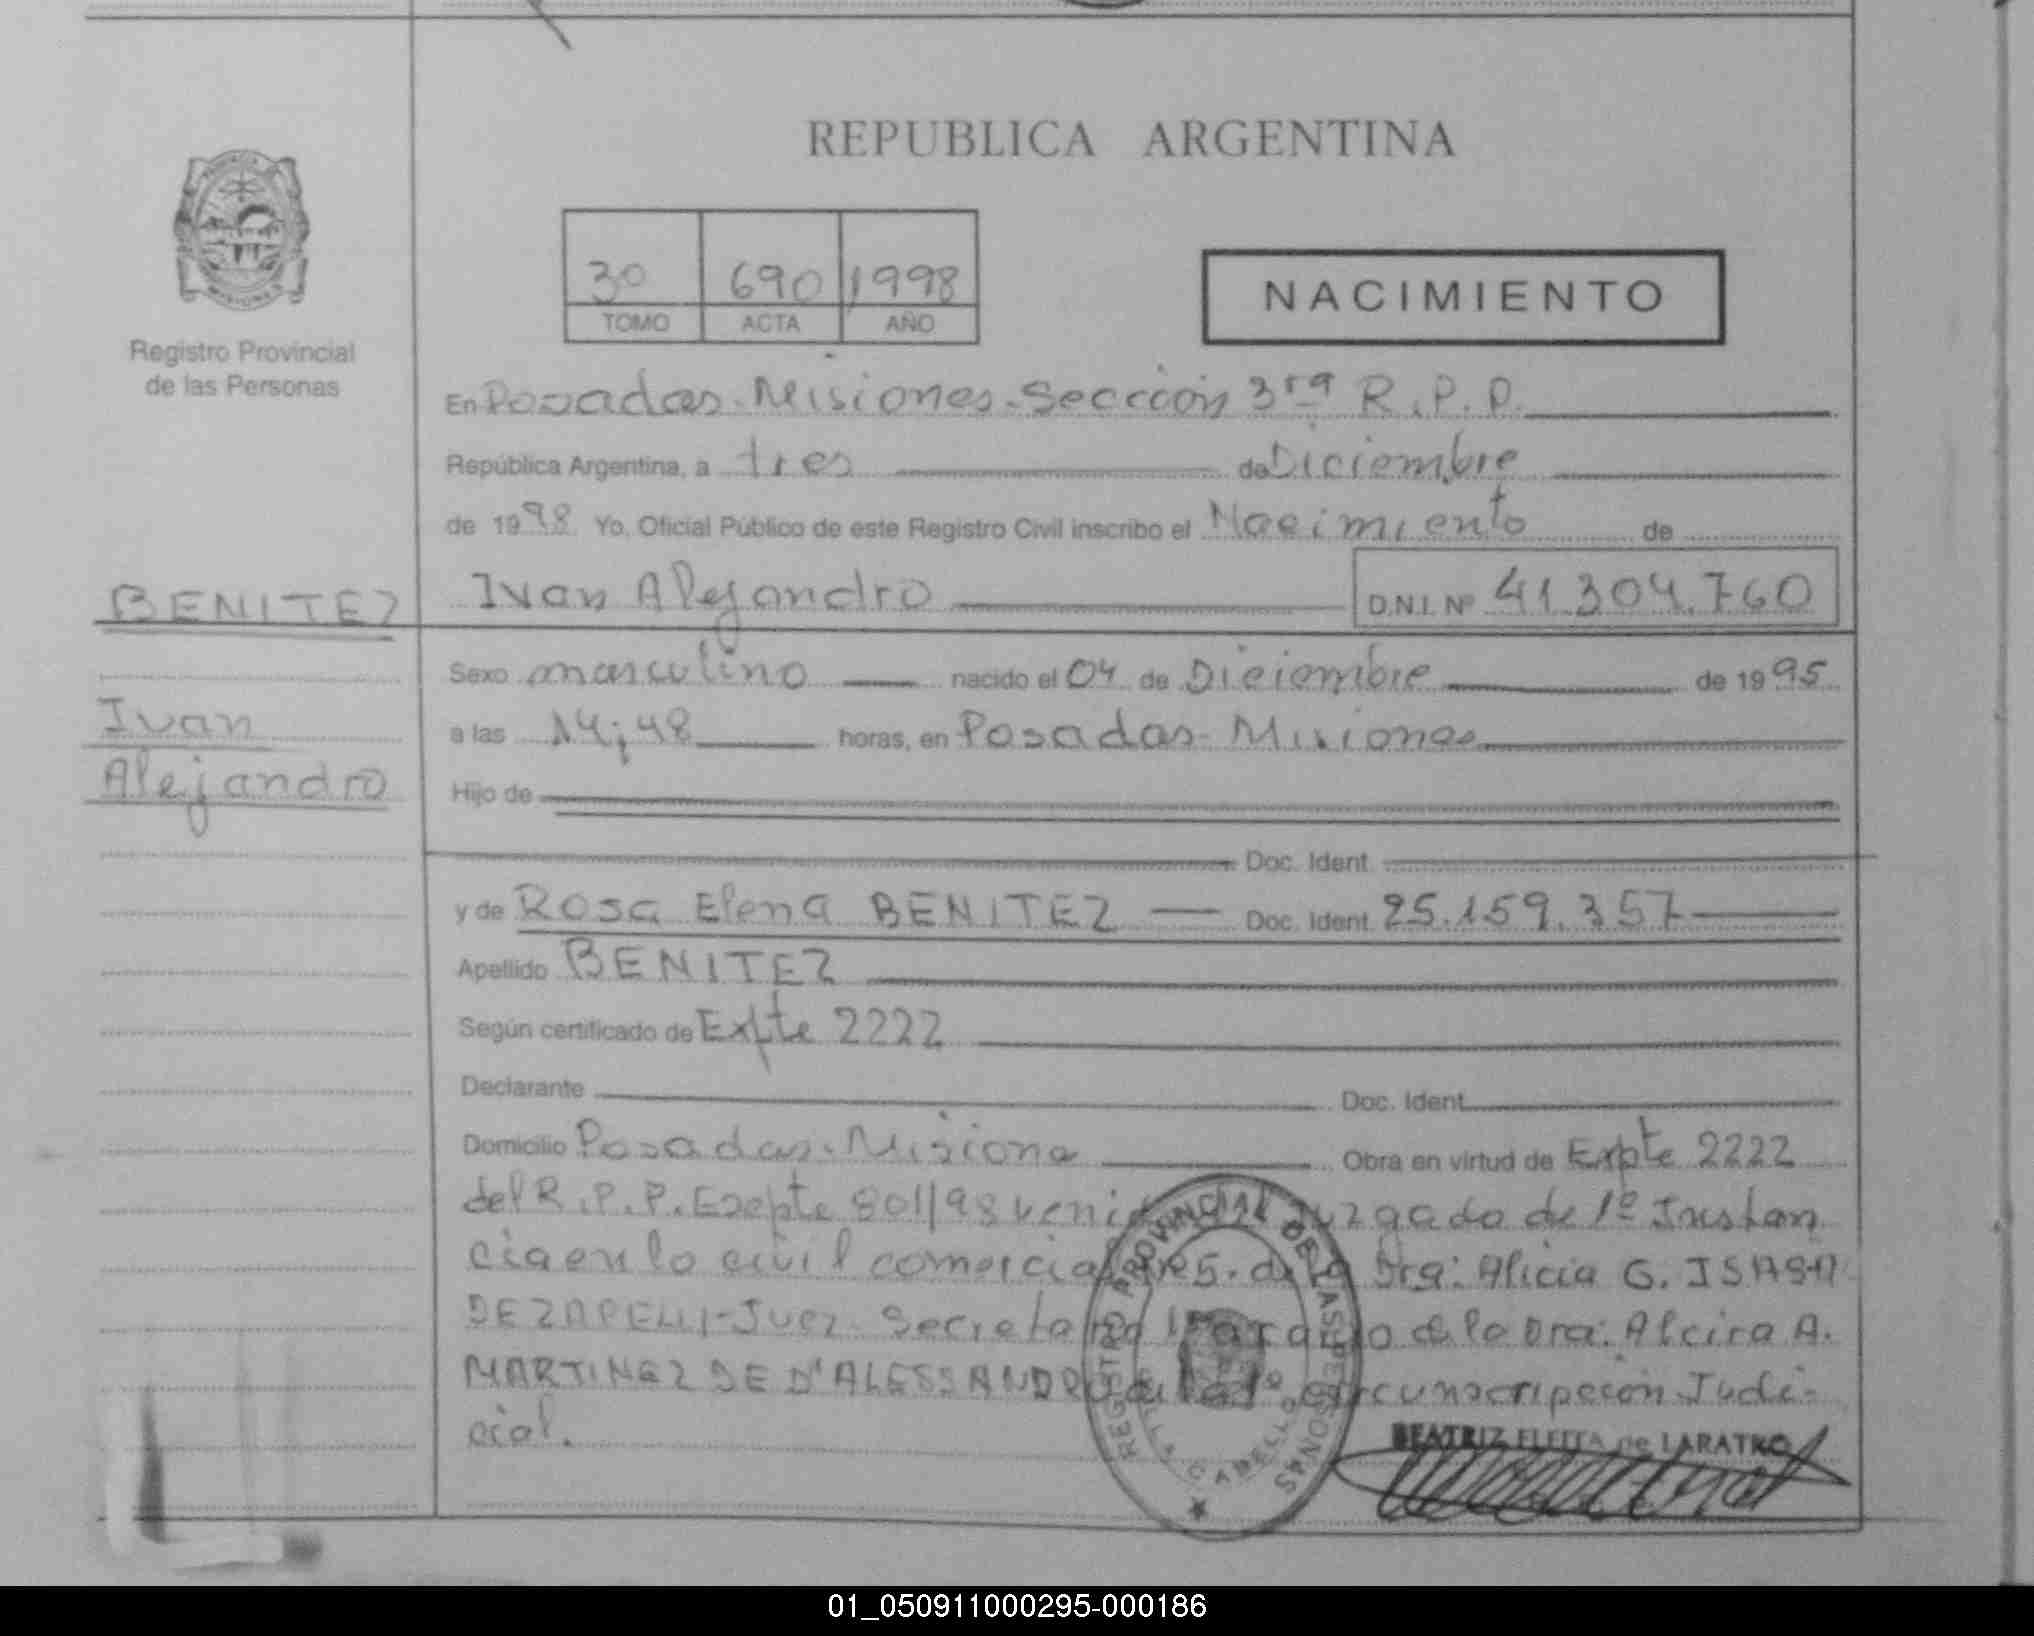 REPUBLICA ARGENTINA
Registro Provincial
de las Personas
3º 690 1998
TOMO ACTA AÑO
NACIMIENTO
En Posadas-Misiones-Sección 3ra R.P.P.
República Argentina, a tres de Diciembre
de 1998 Yo, Oficial Público de este Registro Civil inscribo el Nacimiento de
BENITEZ
Ivan Alejandro D.N.I. Nº 41.304.760
Ivan
Alejandro
Sexo masculino nacido el 04 de Diciembre de 1995
a las 14;48 horas, en Posadas-Misiones
Hijo de
Doc. Ident.
y de Rosa Elena BENITEZ Doc. Ident. 25.159.357
Apellido BENITEZ
Según certificado de Expte 2222
Declarante Doc. Ident.
Domicilio Posadas-Misione Obra en virtud de Expte 2222
del R.P.P. 801/98 Juzgado de 1º Instan
cia en lo civil comercial de la Dra: Alicia G.
DE ZAPELLI-Juez. a de la Dra: Alcira A.
MARTINEZ DE D'ALESSANDRO circunscripción Judi-
cial.
REGISTRO PROVINCIAL DE LAS PERSONAS
BEATRIZ FLEITA de LARATRO
01_050911000295-000186